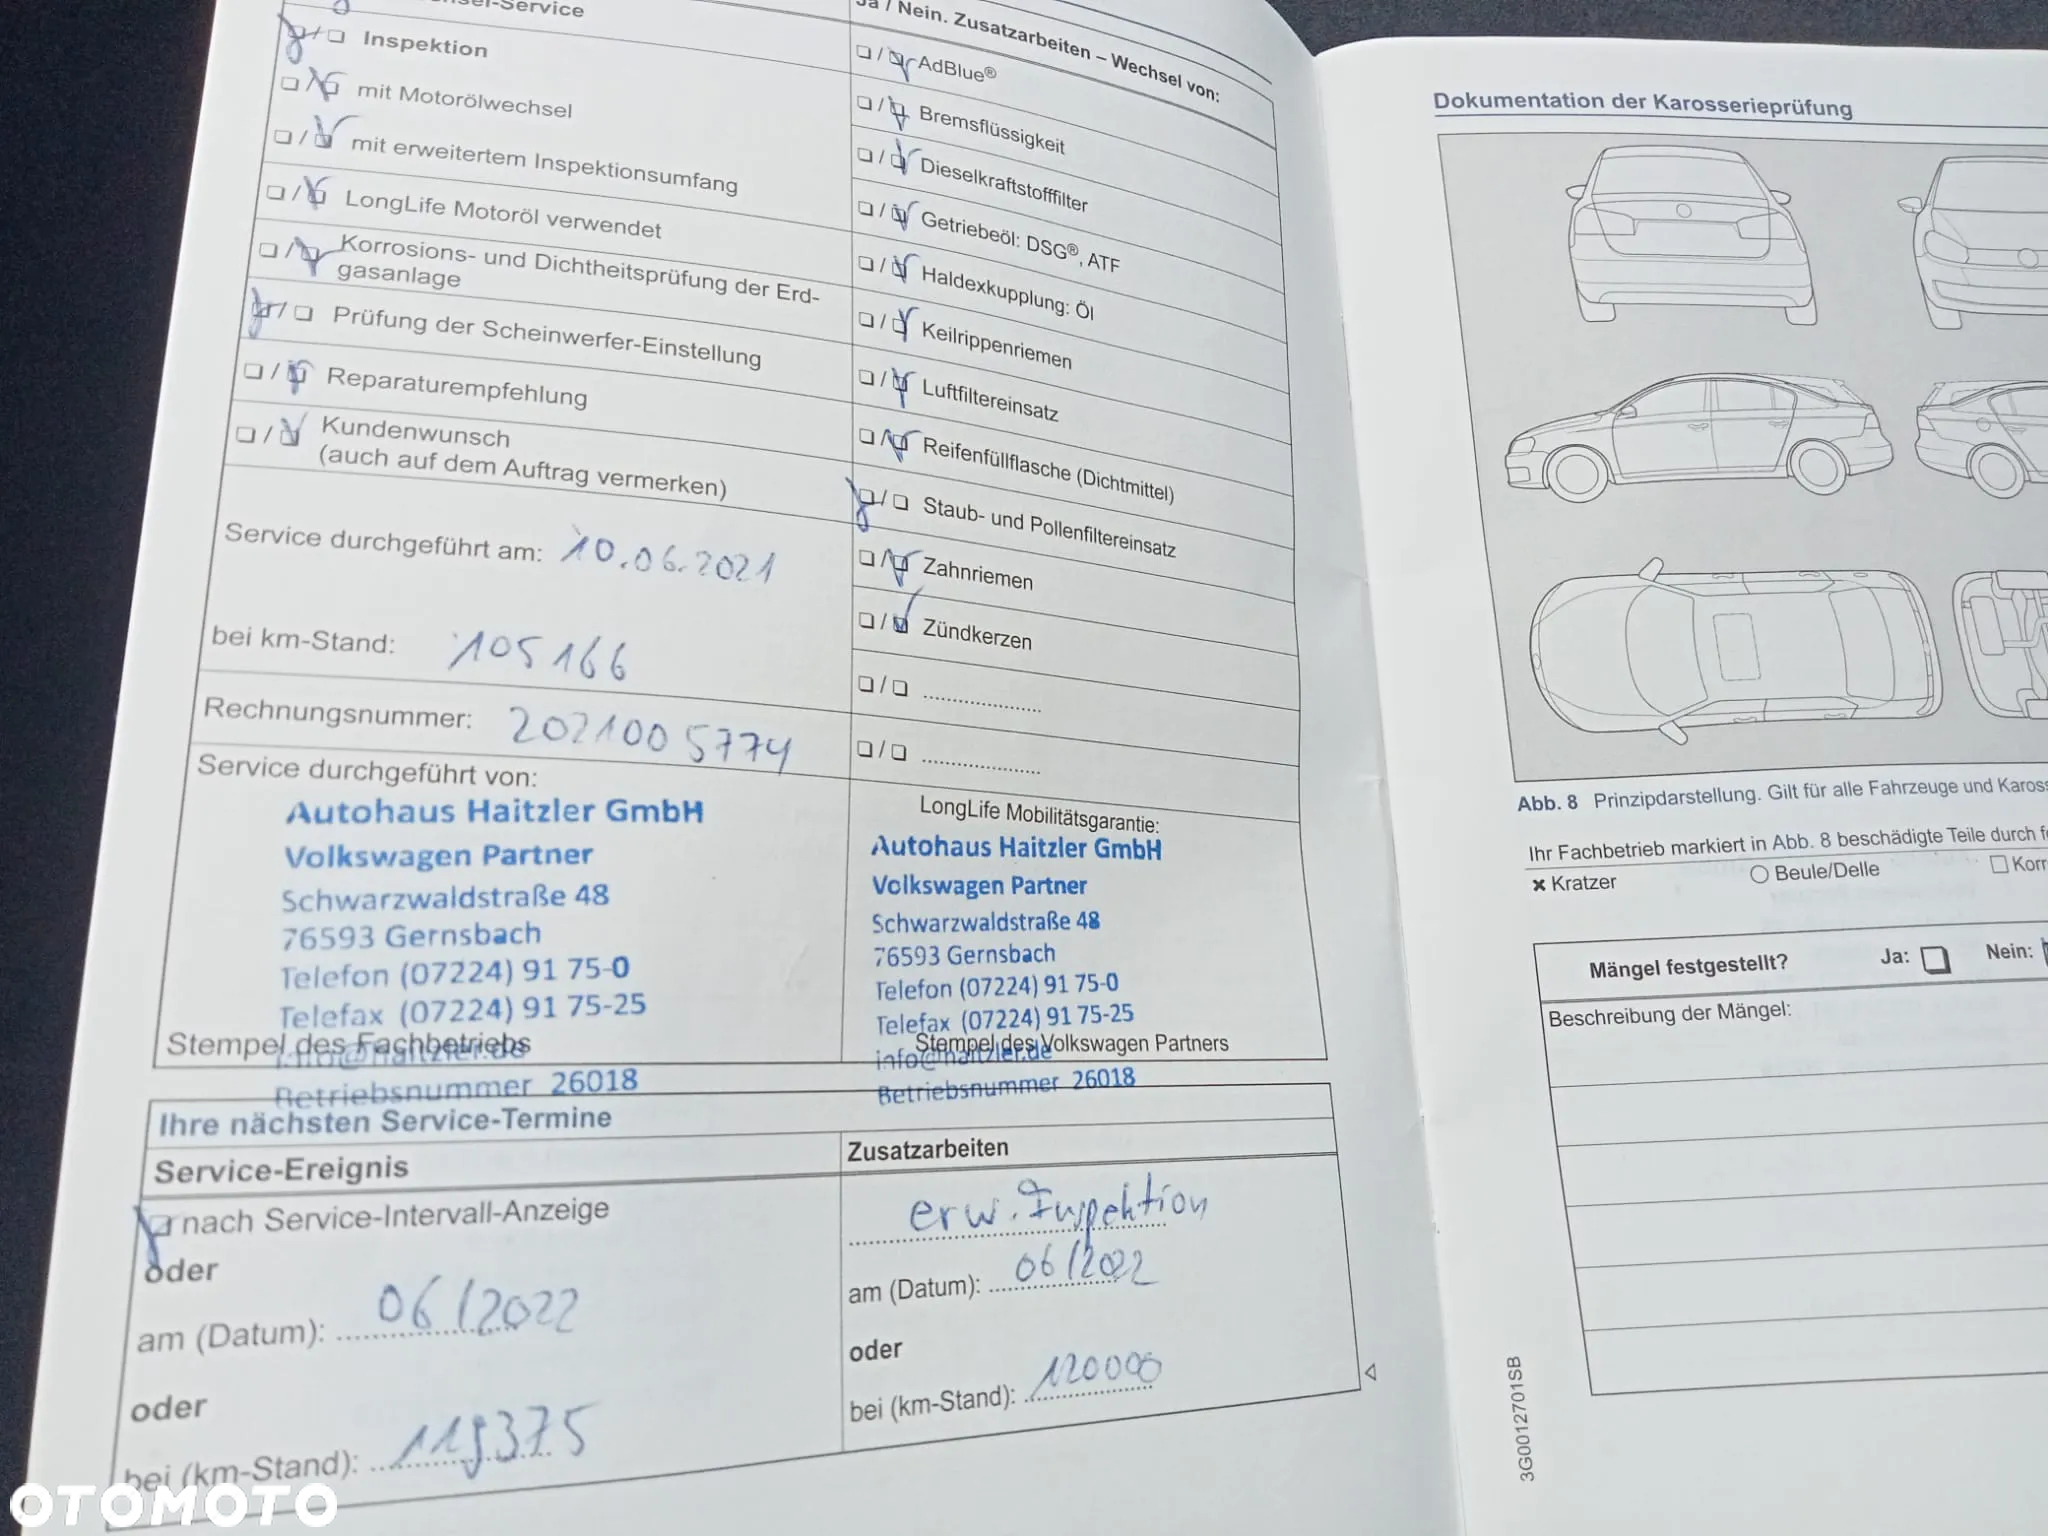 -Service
Inspektion
mit Motorölwechsel
mit erweitertem Inspektionsumfang
LongLife Motoröl verwendet
Korrosions- und Dichtheitsprüfung der Erd-
gasanlage
Prüfung der Scheinwerfer-Einstellung
Reparaturempfehlung
Kundenwunsch
(auch auf dem Auftrag vermerken)
Service durchgeführt am: 10.06.2021
bei km-Stand: 105166
Rechnungsnummer: 2021005774
Service durchgeführt von:
Autohaus Haitzler GmbH
Volkswagen Partner
Schwarzwaldstraße 48
76593 Gernsbach
Telefon (07224) 91 75-0
Telefax (07224) 91 75-25
Stempel des Fachbetriebs
info@haitzler.de
Betriebsnummer 26018
Ja / Nein. Zusatzarbeiten – Wechsel von:
AdBlue®
Bremsflüssigkeit
Dieselkraftstofffilter
Getriebeöl: DSG®, ATF
Haldexkupplung: Öl
Keilrippenriemen
Luftfiltereinsatz
Reifenfüllflasche (Dichtmittel)
Staub- und Pollenfiltereinsatz
Zahnriemen
Zündkerzen
LongLife Mobilitätsgarantie:
Autohaus Haitzler GmbH
Volkswagen Partner
Schwarzwaldstraße 48
76593 Gernsbach
Telefon (07224) 91 75-0
Telefax (07224) 91 75-25
Stempel des Volkswagen Partners
info@haitzler.de
Betriebsnummer 26018
Ihre nächsten Service-Termine
Service-Ereignis
nach Service-Intervall-Anzeige
oder
am (Datum): 06/2022
oder
bei (km-Stand): 119375
Zusatzarbeiten
erw. Inspektion
am (Datum): 06/2022
oder
bei (km-Stand): 120000
Dokumentation der Karosserieprüfung
Abb. 8 Prinzipdarstellung. Gilt für alle Fahrzeuge und Kaross
Ihr Fachbetrieb markiert in Abb. 8 beschädigte Teile durch f
Kratzer
Beule/Delle
Korr
Mängel festgestellt? Ja: Nein:
Beschreibung der Mängel:
3G0012701SB
OTOMOTO